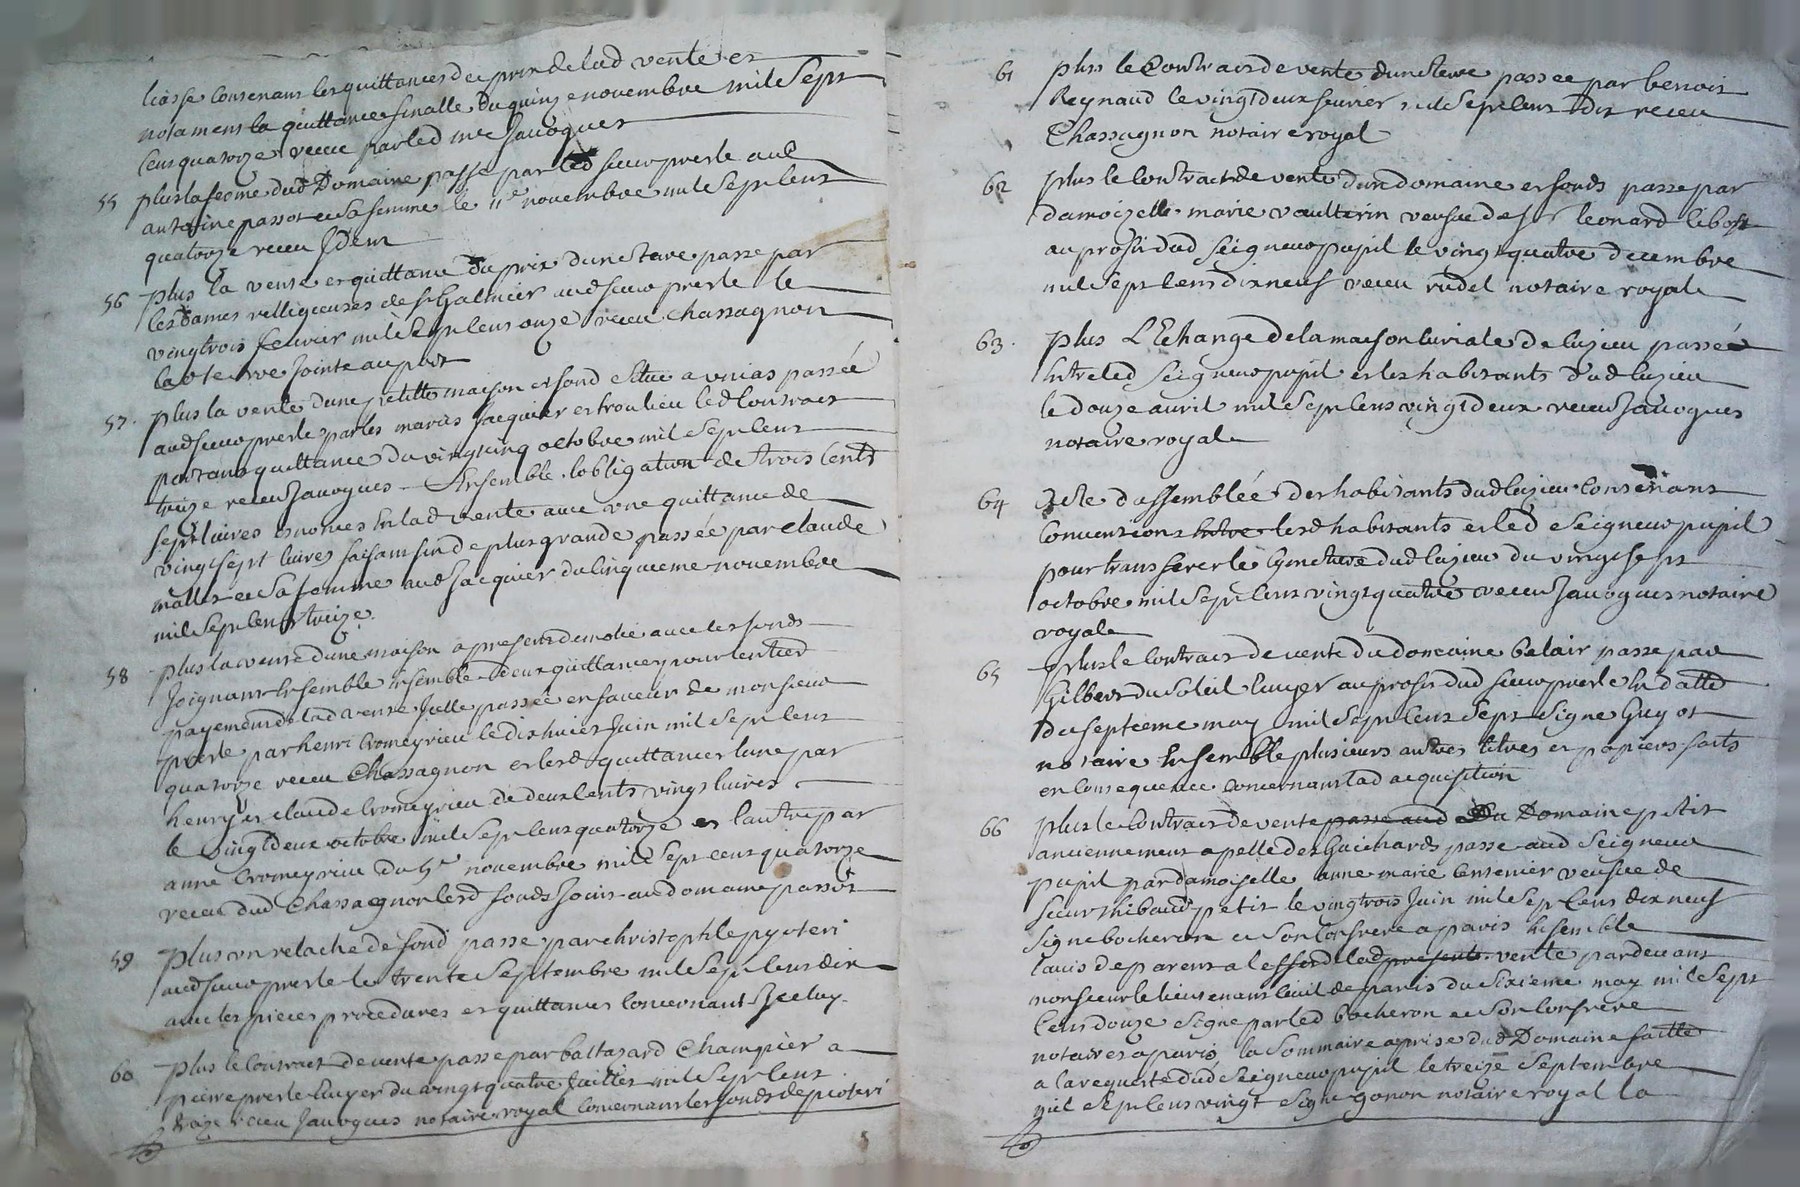 liasse contenant les quittances de prix de lad vente et
notament la quittance finalle du quinze novembre mil sept
cent quatorze receu par led me Javogues
55 plus la ferme dud Domaine passé par led sieur presle aud
antoine passot et sa femme le 11e novembre mil sept cent
quatorze receu Idem
56 plus la vente et quittance du prix dune terre passe par
les Dames relligieuses de st Galmier aud sieur presle le
vingt trois fevrier mil sept cent onze receu Chassagnon
lad terre jointe au
57. plus la vente dune petitte maison et fond situé a passée
aud sieur presle par les mariés Jacquier et led Contract
portant quittance du vingt cinq octobre mil sept cent
treize receu Javogues - Ensemble lobligation de trois cents
sept livres enoncés En lad vente avec une quittance de
vingt sept livres faisant fin de plus grande passée par claude
mallet et sa femme aud Jacquier du cinquieme novembre
mil sept cent treize.
58 plus la vente dune maison a present demolie avec les fonds
Joignant Ensemble Ensemble deux quittances pour lentier
payement de lad vente Icelle passée en faveur de monsieur
presle par henri Cromeyrieu le dix huict Juin mil sept cent
quatorze receu Chassagnon et lesd quittances lune par
henry et claude Cromeyrieu de deux cents vingt livres
le vingt deux octobre mil sept cent quatorze et lautre par
anne Cromeyrieu du 5e novembre mil sept cent quatorze
receu dud Chassagnon lesd fonds Joints au domaine passot
59 plus un relaché de fond passe par christophle pyoteri
aud sieur presle le trente septembre mil sept cent dix
avec les pieces procedures et quittances Concernant Iceluy.
60 plus le Contract de vente passe par baltazard Champier a
pierre presle Ecuyer du vingt quatre Juillet mil sept cent
treize receu Javogues notaire royal Concernant les fonds de pioteri
61 plus le Contract de vente dune terre passee par benoit
Reynaud le vingt deux fevrier mil sept cent dix receu
Chassagnon notaire royal
62 plus le Contract de vente dun domaine et fonds passe par
damoizelle marie vaulterin veufue de sr leonard libost
au profit dud seigneur pupil le vingt quatre decembre
mil sept cent dix neuf receu rudel notaire royal
63. plus LEchange de la maison curiale de luzieu passée
Entre led seigneur pupil et les habitants dud luzieu
le douze avril mil sept cent vingt deux receu Javogues
notaire royal
64 Acte dassemblée des habitants dud luzieu Contenant
Conventions Entre lesd habitants et led seigneur pupil
pour transferer le Cymetiere dud luzieu du vingt sept
octobre mil sept cent vingt quatre receu Javogues notaire
royal
65 plus le Contract de vente du domaine belair passe par
Gilbert du soleil Ecuyer au profit dud sieur presle En datte
du septieme may mil sept cent sept signe Guyot
notaire Ensemble plusieurs autres titres et papiers faits
en Consequence Concernant lad acquisition
66 plus le Contract de vente passe aud du Domaine petit
anciennement apellé des Guichards passe aud seigneur
pupil par damoiselle anne marie veufue de
sieur thibaud petit le vingt trois Juin mil sept cent dix neuf
signe bocheron et son Confrere a paris Ensemble
lavis de parents a leffect de lad presente vente par devant
monsieur le lieutenant Civil de paris du sixieme may mil sept
Cent douze signe par led bocheron et son Confrere
notaires a paris, la sommaire aprise dud Domaine faitte
a la requeste dud seigneur pupil le treize septembre
mil sept cent vingt signe gonon notaire royal la